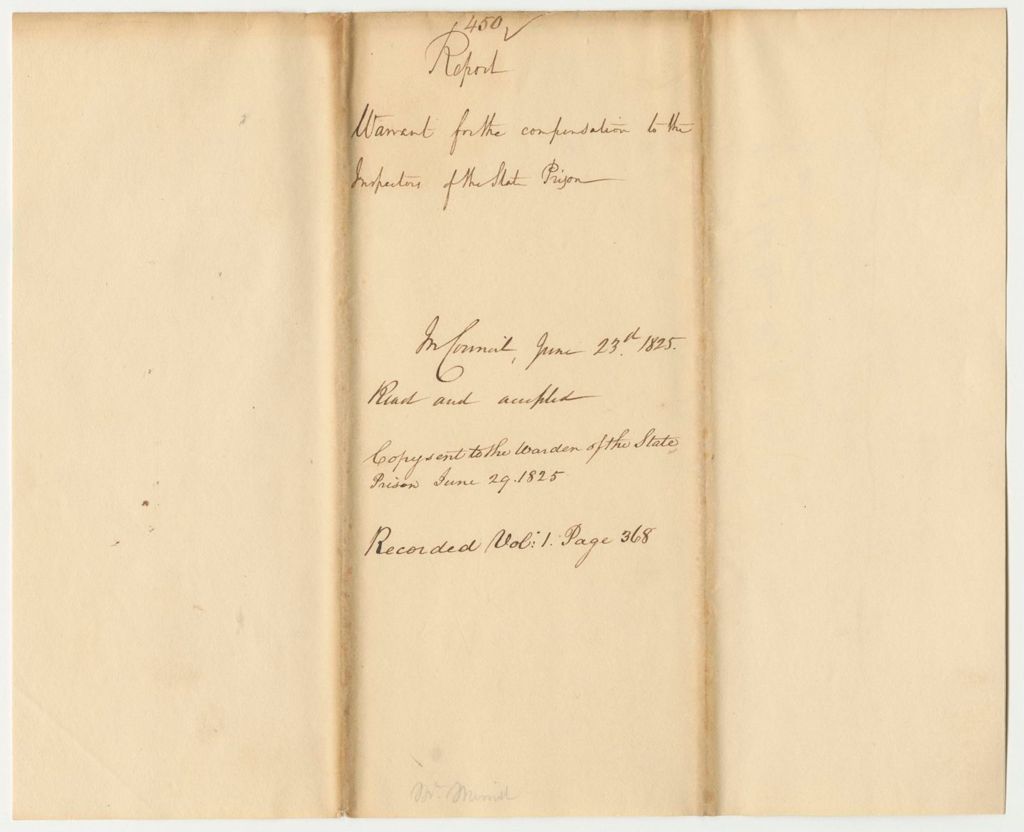 450
Report
Warrant for the compensation to the
Inspectors of the State Prison
In Council, June 23.d 1825.
Read and accepted
Copy sent to the Warden of the State
Prison June 29. 1825
Recorded Vol: 1. Page 368
Mr.